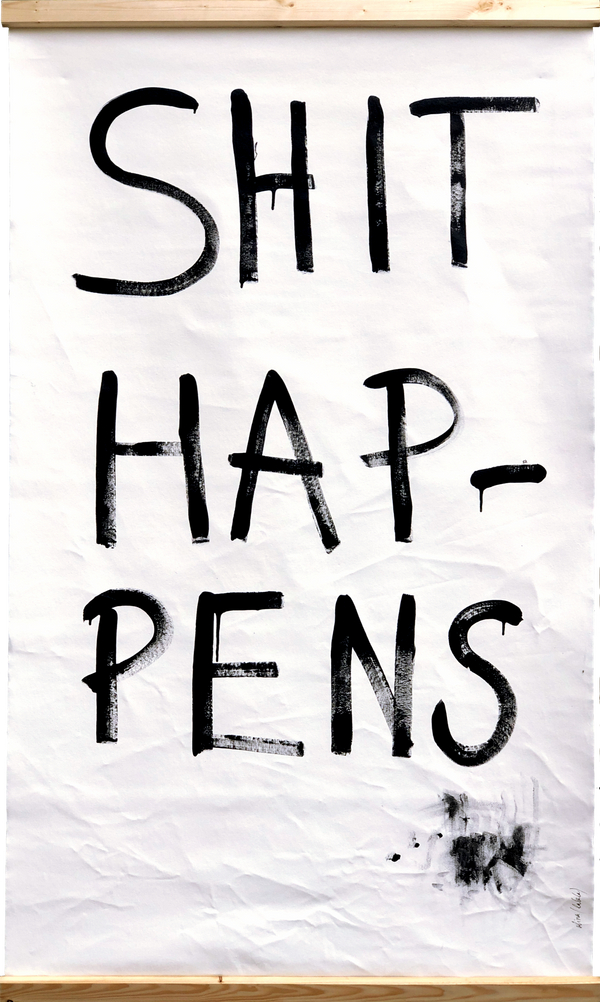 SHIT
HAP-
PENS